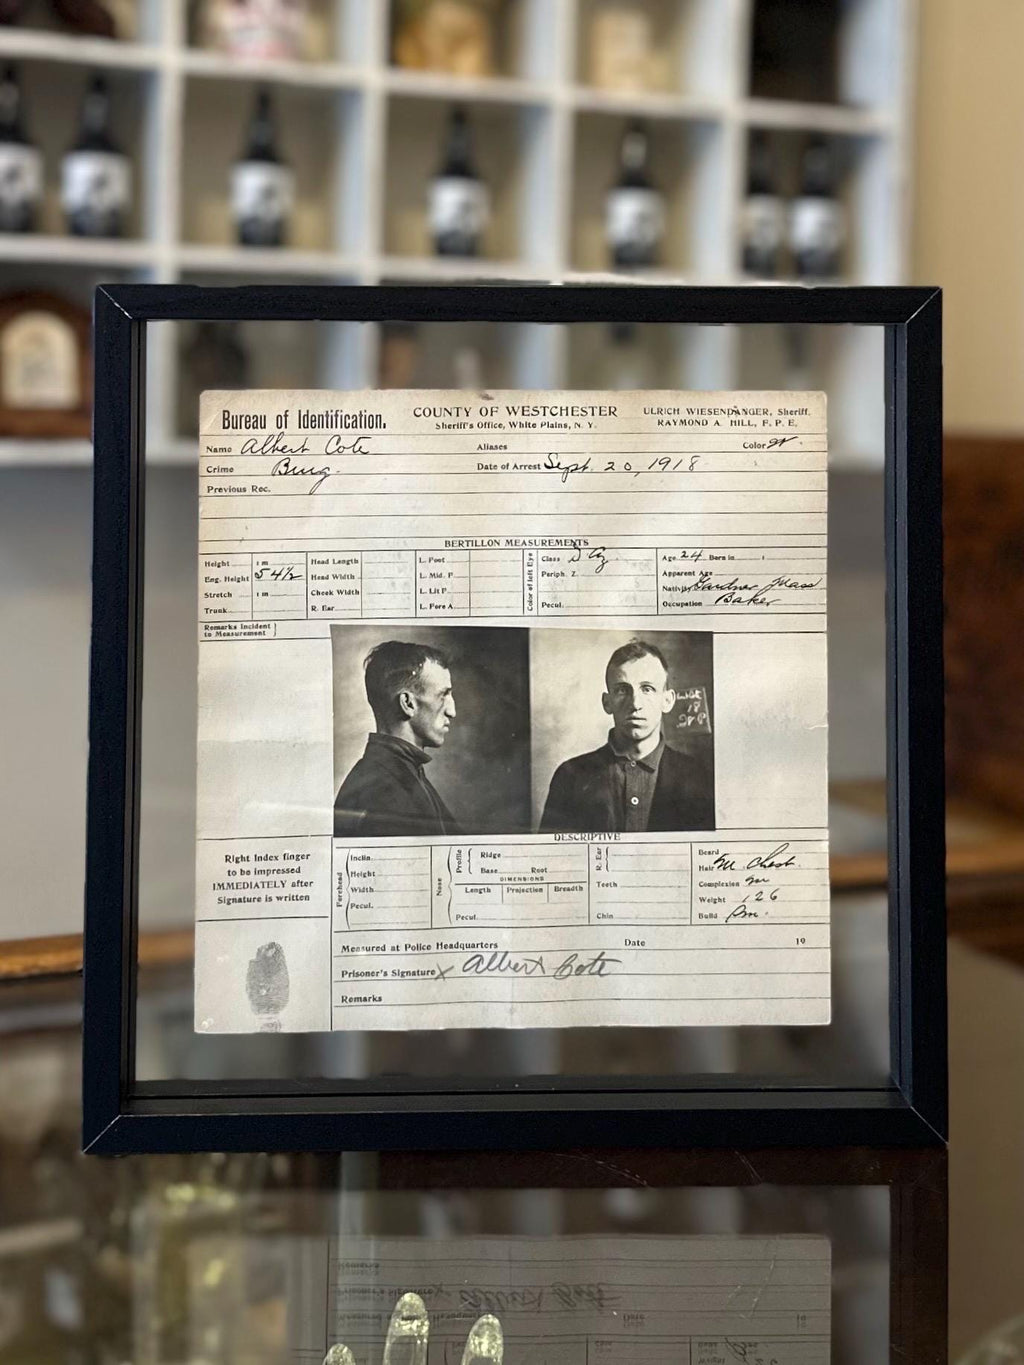 Bureau of Identification.
COUNTY OF WESTCHESTER
Sheriff's Office, White Plains, N. Y.
ULRICH WIESENDANGER, Sheriff.
RAYMOND A. HILL, F. P. E.
Name Albert Cote Aliases Color W.
Crime Burg. Date of Arrest Sept. 20, 1918
Previous Rec.
BERTILLON MEASUREMENTS
Height 1 m Head Length L. Foot Class Age 24 Born in
Eng. Height 5 4 1/2 Head Width L. Mid. F. Periph. Z. Apparent Age
Stretch 1 m Cheek Width L. Lit F. Nativity Gardner Mass
Trunk R. Ear L. Fore A. Pecul. Occupation Baker
Color of left Eye
Remarks Incident
to Measurement
18
DESCRIPTIVE
Right Index finger
to be impressed
IMMEDIATELY after
Signature is written
Forehead
Inclin.
Height
Width
Pecul.
Nose
Profile
Ridge
Base Root
DIMENSIONS
Length Projection Breadth
Pecul.
R. Ear
Teeth
Chin
Beard
Hair M. Chest.
Complexion
Weight 126
Build
Measured at Police Headquarters Date 19
Prisoner's Signature X Albert Cote
Remarks